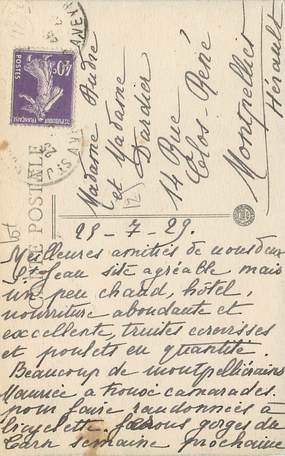 POSTES
40c
CARTE POSTALE
Madame André
et Madame
Dardier
14 Rue
Clos-René
Montpellier
Hérault
25-7-29.
Meilleures amitiés de nous deux
St Jean site agréable mais
un peu chaud, hôtel,
nourriture abondante et
excellente, truites écrevisses
et poulets en quantité
Beaucoup de montpelliérains
Maurice a trouvé camarades.
pour faire randonnées à
bicyclette. ferons gorges du
Tarn semaine prochaine